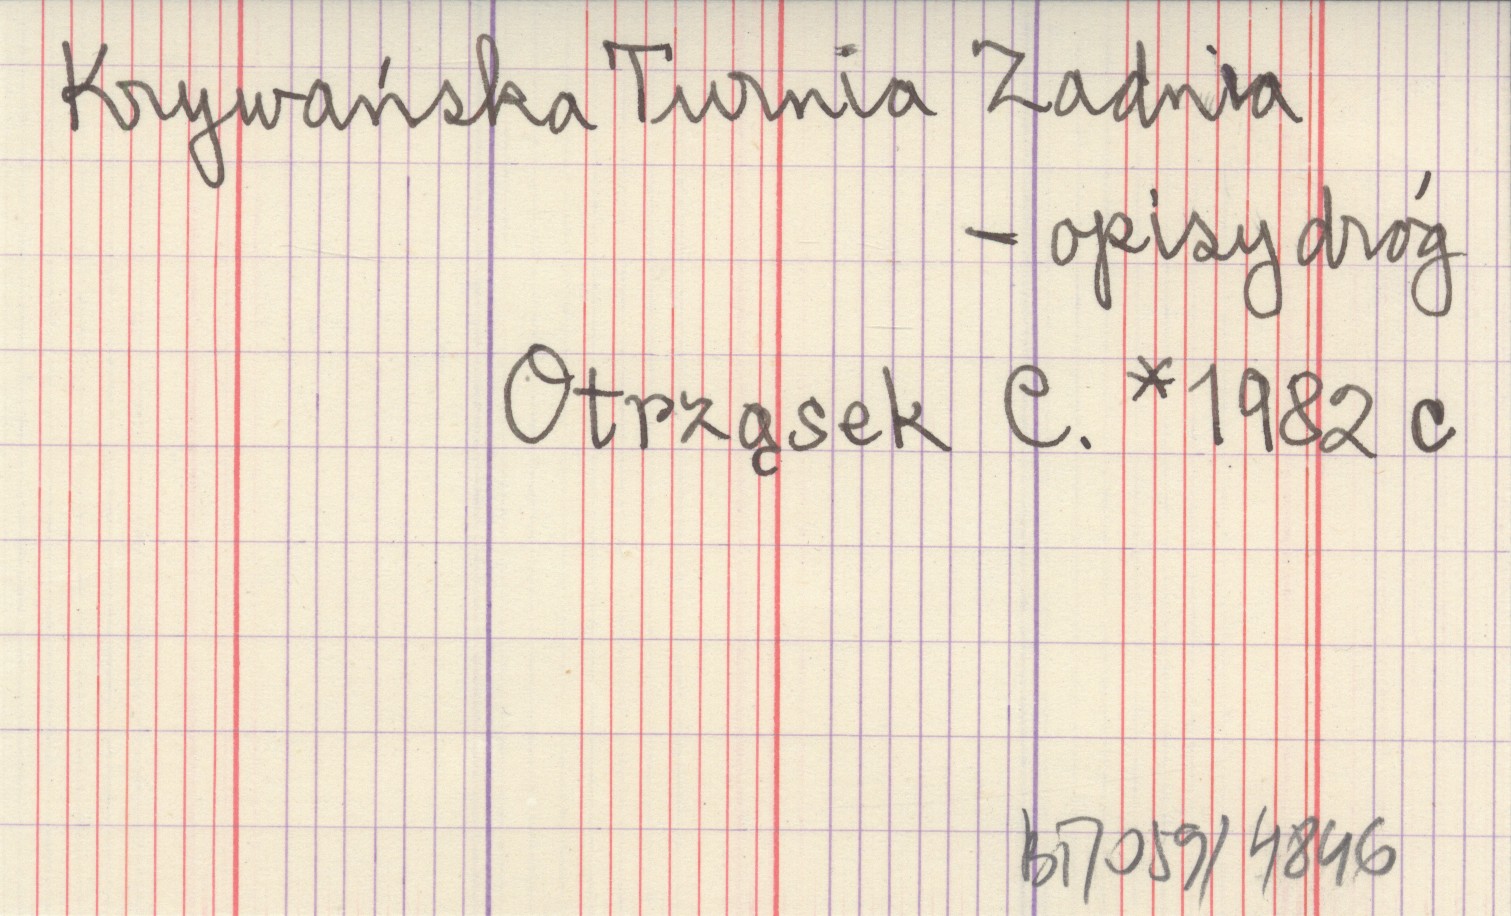 Krywańska Turnia Zadnia
- opisy dróg
Otrząsek C. *1982 c
059/4846